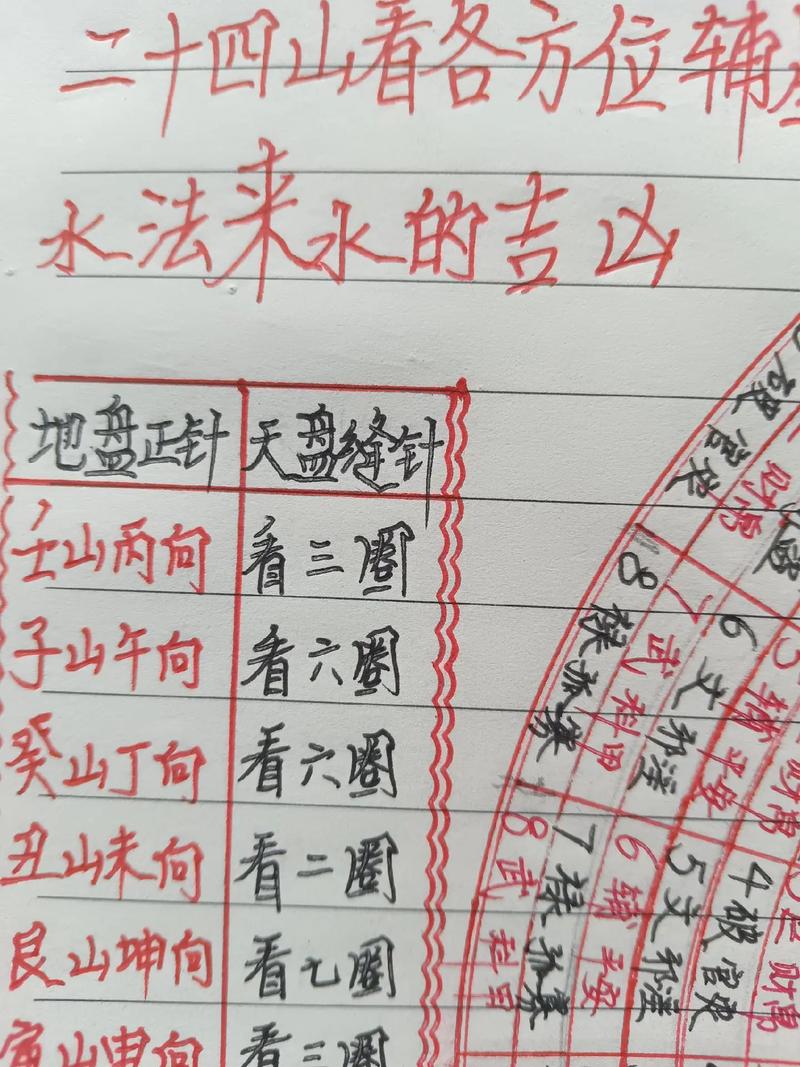 二十四山看各方位辅
水法来水的吉凶
地盘正针 天盘缝针
壬山丙向 看三圈
子山午向 看六圈
癸山丁向 看六圈
丑山未向 看二圈
艮山坤向 看七圈
寅山申向 看三圈
8 禄孤寡
7 武科甲
6 文邪淫
5 辅平安
财富
8 武
7 禄孤寡
6 辅平安
5 文邪淫
4 破官
财富